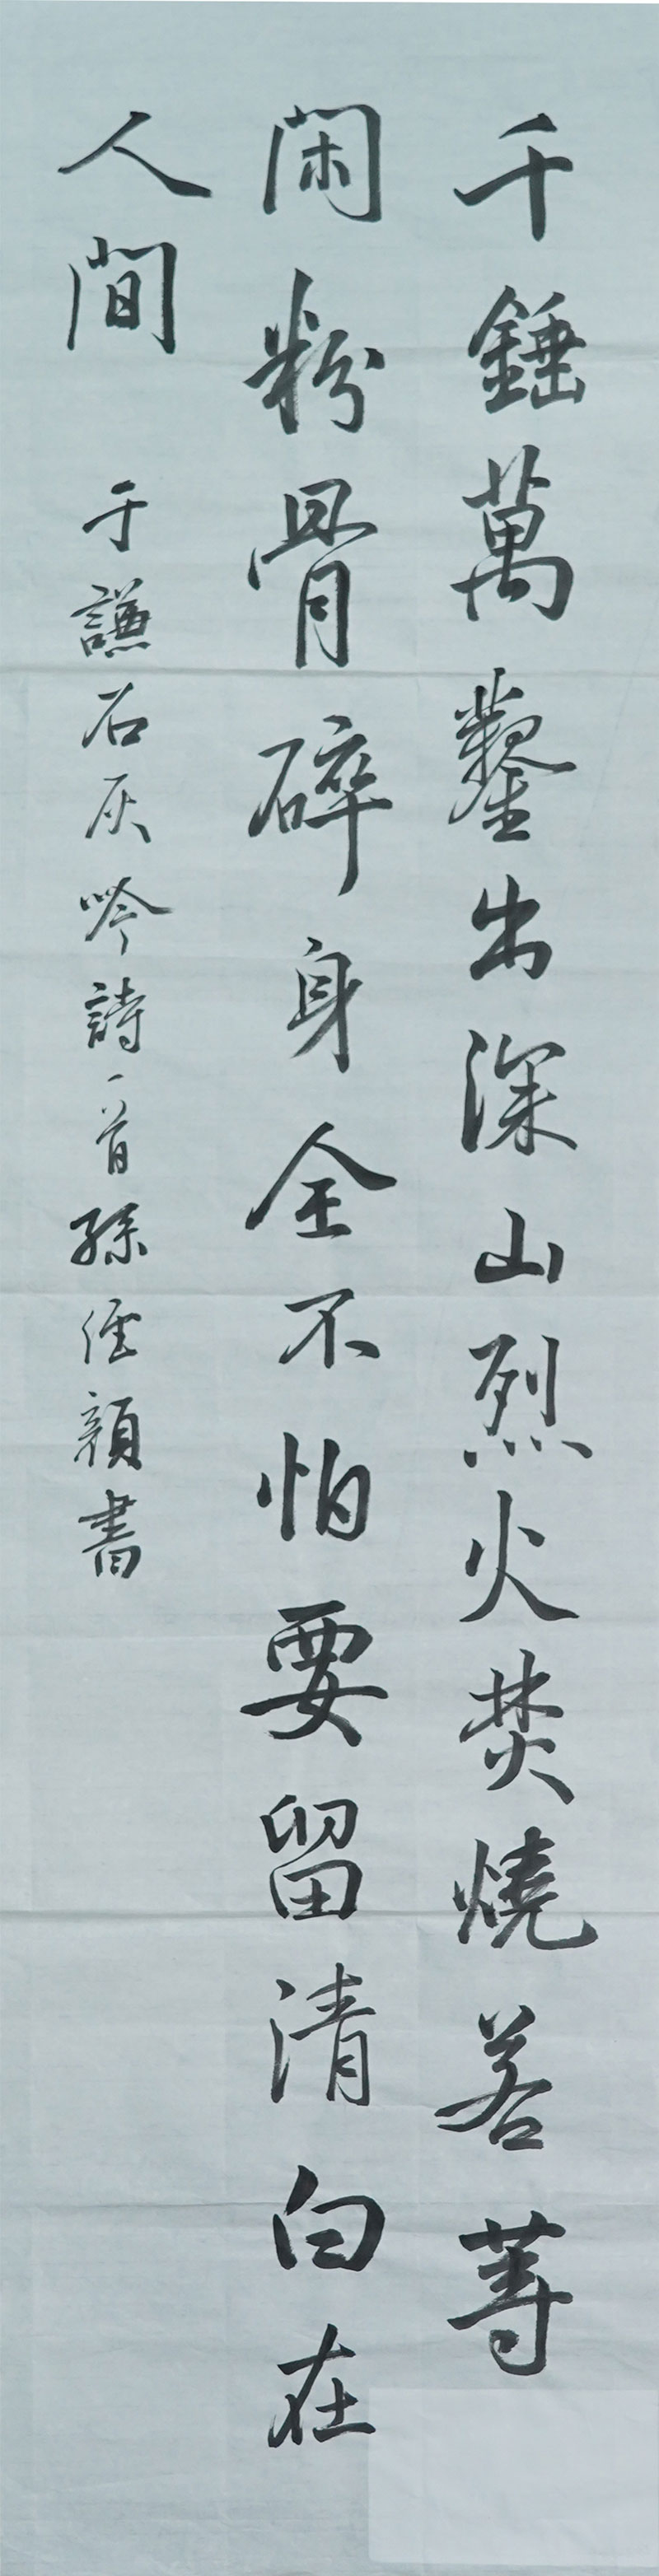 千錘萬鑿出深山烈火焚燒若等
閑粉骨碎身全不怕要留清白在
人間 于謙石灰吟詩一首孫 書